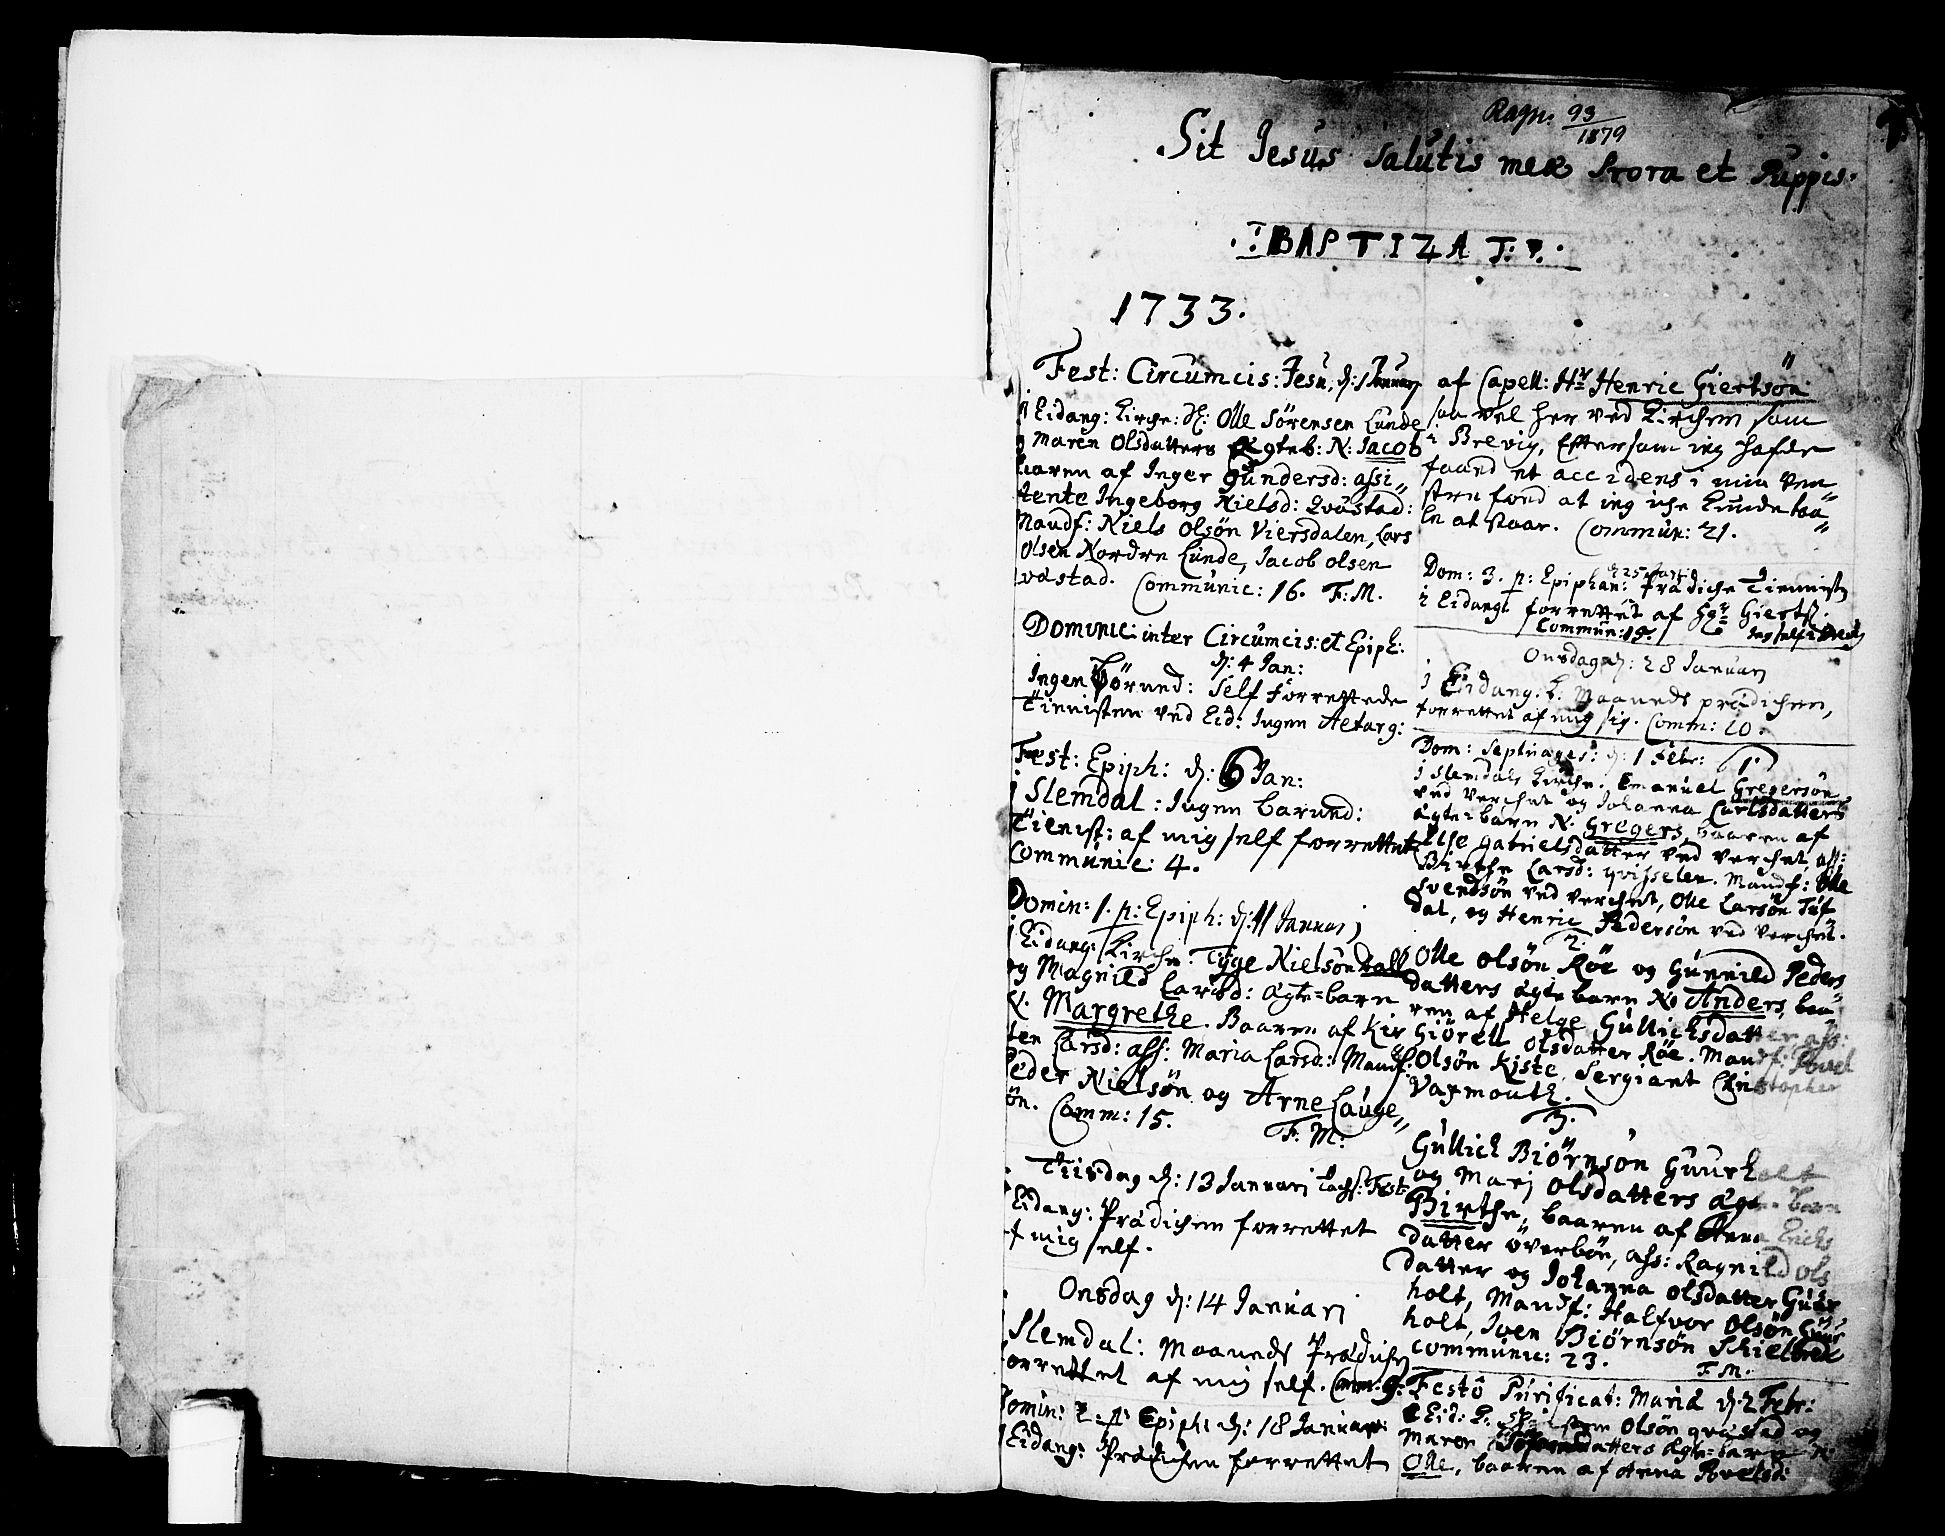 Ragn: 93/1879
Sit Jesus Salutis meæ Prora et Puppis.
BAPTIZATI.
1733.
Fest: Circumcis: Jesu, d: 1 Januarj
j Eidang: Kirche: Olle Sörensen Lunde
Maren Olsdatters Ægteb: N: Jacob
baaren af Inger Gundersd: assi„
tente Ingeborg Nielsd: Qvastad:
Mandf: Niels Olsön Viersdalen, Lars
Olsen Nordre Lunde, Jacob Olsen
vastad. Communic: 16. F: M.
Dominic: inter Circumcis: et Epiph:
d: 4 Jan:
Ingen Börned: Self forrettede
Tienisten ved Eid: Ingen Altarg:
Fest: Epiph: d: 6 Jan:
j Slemdal: Ingen barned:
Tienist: af mig self forrettet
Communic: 4.
Domin: 1. p: Epiph: d: 11 Januarj
j Eidang: Kirche: Tyge Nielsön
og Magnild Larsd: ägte=barn
N: Margrethe. Baaren af Kir
sten Larsd: ass: Maria Larsd: Mandf:
Peder Nielsön og Arne Lauge„
ön. Comm: 15.
F: M:
Tiisdag d: 13 Januarj Tachs: Fest
Eidang: Prädichen forrettet
af mig self.
Onsdag d: 14 Januarj
j Slemdal: Maaneds Prädichen
forrettet af mig self. Comm: 9:
Domin: 2. p: Epiph: d: 18 Januarj:
j Eidang: Prädichen forrettet
af Capell: Hr Henric Giertsön
saa vel her ved Kirchen som
i Brevig, Eftersom ieg hafde
faaed et accidens i min ven„
stre food at ieg iche kunde taa„
le at staar. Commun: 21.
Dom: 3. p: Epiphan: d 25 Jan: Prädiche Tienisten
i Eidang: forrettet af Hr Gierts:
Commun: 19.
Onsdag d: 28 Januarj
j Eidang. K: Maaneds prädichen,
forrettet af mig sig. Comm: 20.
Dom: Septuages: d: 1 Febr:
1.
j Slemdals Kirche. Emanuel Gregersön
ved Verchet og Johanna Carlsdatters
ägte=barn N: Gregers, baaren af
Else Gabrielsdatter ved Verchet, ass:
Birthe Larsd: qvisselen. Mandf: Olle
Svendsön ved Verchet, Olle Larsön Tuf
dal, og Henric Pedersön ved Verchet.
2.
Olle Olsön Röe og Gunnild Peders
datters ägte barn N: Anders, baa„
ren af Helge Gullichsdatter ass:
Giörell Olsdatter Röe. Mandf: Povel
Olsön Kiste, Sergiant Christopher
Vaxmouth.
3.
Gullich Biörnsön Guurholt
og Marj Olsdatters ägte barn
Birthe, baaren af Anna Erichs
datter överbön, ass: Ragnild Ols
datter og Johanna Olsdatter Guur
holt, Mandf: Halfvor Olsön Guur
holt, Iven Biörnsön Skielbred
Communic: 23.
F. M.
Festo Purificat: Mariä d: 2 Febr:
Eid: K: Olsön qvastad og
Maren datters ägte=barn N:
Olle, baaren af Anna Povelsd: